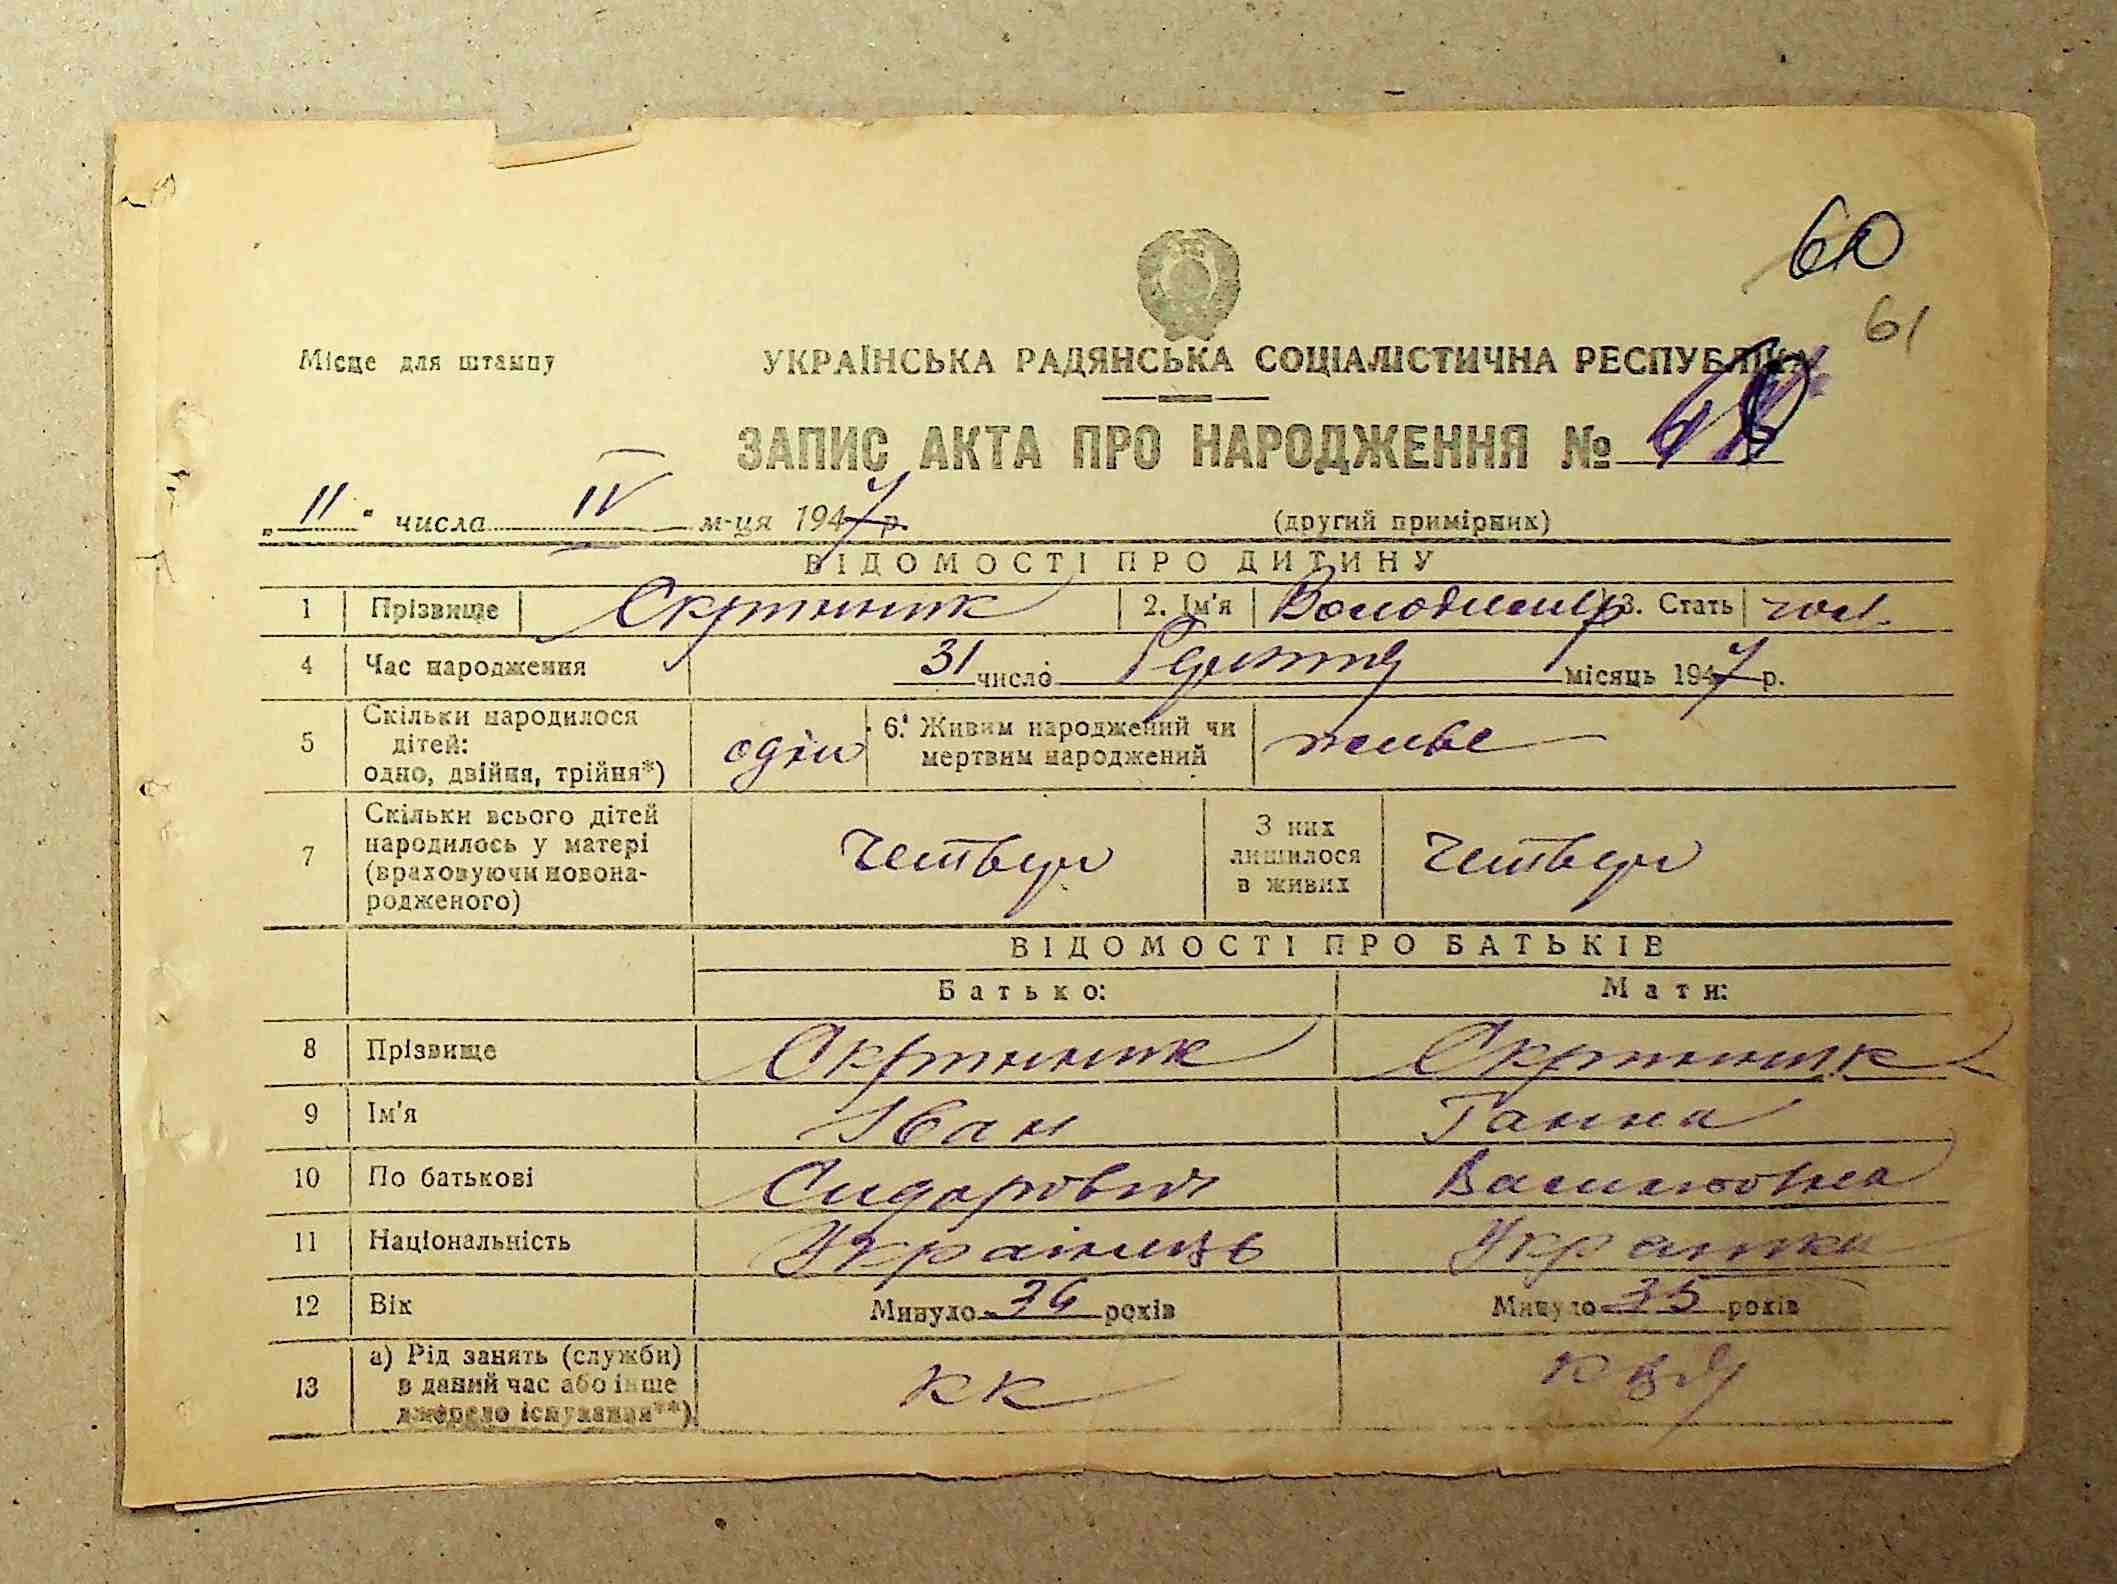 60
61
Місце для штампу
УКРАЇНСЬКА РАДЯНСЬКА СОЦІАЛІСТИЧНА РЕСПУБЛІКА
ЗАПИС АКТА ПРО НАРОДЖЕННЯ №
„11“ числа IV м-ця 1947 р. (другий примірник)
ВІДОМОСТІ ПРО ДИТИНУ
1 Прізвище Скрипник 2. Ім'я Володимир 3. Стать чол.
4 Час народження 31 число місяць 1947 р.
5 Скільки народилося дітей: одно, двійня, трійня*) один 6. Живим народжений чи мертвим народжений живе
7 Скільки всього дітей народилось у матері (враховуючи новонародженого) Четверо З них лишилося в живих Четверо
ВІДОМОСТІ ПРО БАТЬКІВ
Батько: Мати:
8 Прізвище Скрипник Скрипник
9 Ім'я Іван Ганна
10 По батькові Сидорович Василівна
11 Національність Українець Українка
12 Вік Минуло 36 років Минуло 35 років
13 а) Рід занять (служби) в даний час або інше джерело існування**) КК